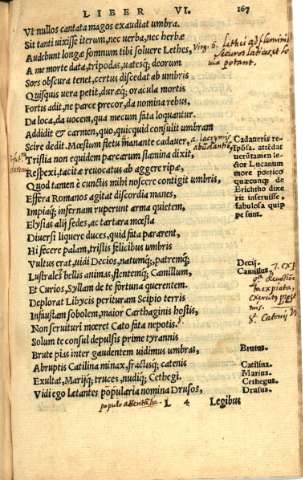 LIBER VI. 167
Vt nullos cantata magos exaudiat umbra.
Sit tanti uixisse iterum, nec uerba, nec herbæ
Audebunt longæ somnum tibi soluere Lethes,
A me morte data, tripodas, uatesq; deorum
Sors obscura tenet, certus discedat ab umbris
Quisquis uera petit, duræq; oracula mortis
Fortis adit, ne parce precor, da nomina rebus,
Da loca, da uocem, qua mecum fata loquantur.
Addidit & carmen, quo, quicquid consulit umbram
Scire dedit. Mœstum fletu manante cadauer,
Tristia non equidem parcarum stamina dixit,
Respexi, tacitæ reuocatus ab aggere ripæ,
Quod tamen è cunctis mihi noscere contigit umbris,
Effera Romanos agitat discordia manes,
Impiaq; infernam ruperunt arma quietem,
Elysias alij sedes, ac tartara mœsta
Diuersi liquere duces, quid fata pararent,
Hi fecere palam, tristis felicibus umbris
Vultus erat, uidi Decios, natumq; patremq;
Lustrales bellis animas, flentemq; Camillum,
Et Curios, Syllam de te fortuna querentem.
Deplorat Libycis perituram Scipio terris
Infaustam sobolem, maior Carthaginis hostis,
Non seruituri mœret Cato fata nepotis.
Solum te consul depulsis prime tyrannis
Brute pias inter gaudentem uidimus umbras,
Abruptis Catilina minax, fractisq; catenis
Exultat, Marijq; truces, nudiq; Cethegi.
Vidi ego lætantes popularia nomina Drusos,
L 4 Legibus
Cadaueris re-
spōsa. attēdat
uerūtamen le-
ctor Lucanum
more poëtico
quæcunq; de
Erichtho dixe
rit inseruisse,
fabulosa quip
pe sunt.
Decij.
Camillus.
Brutus.
Catilina.
Marius.
Cethegus.
Drusus.